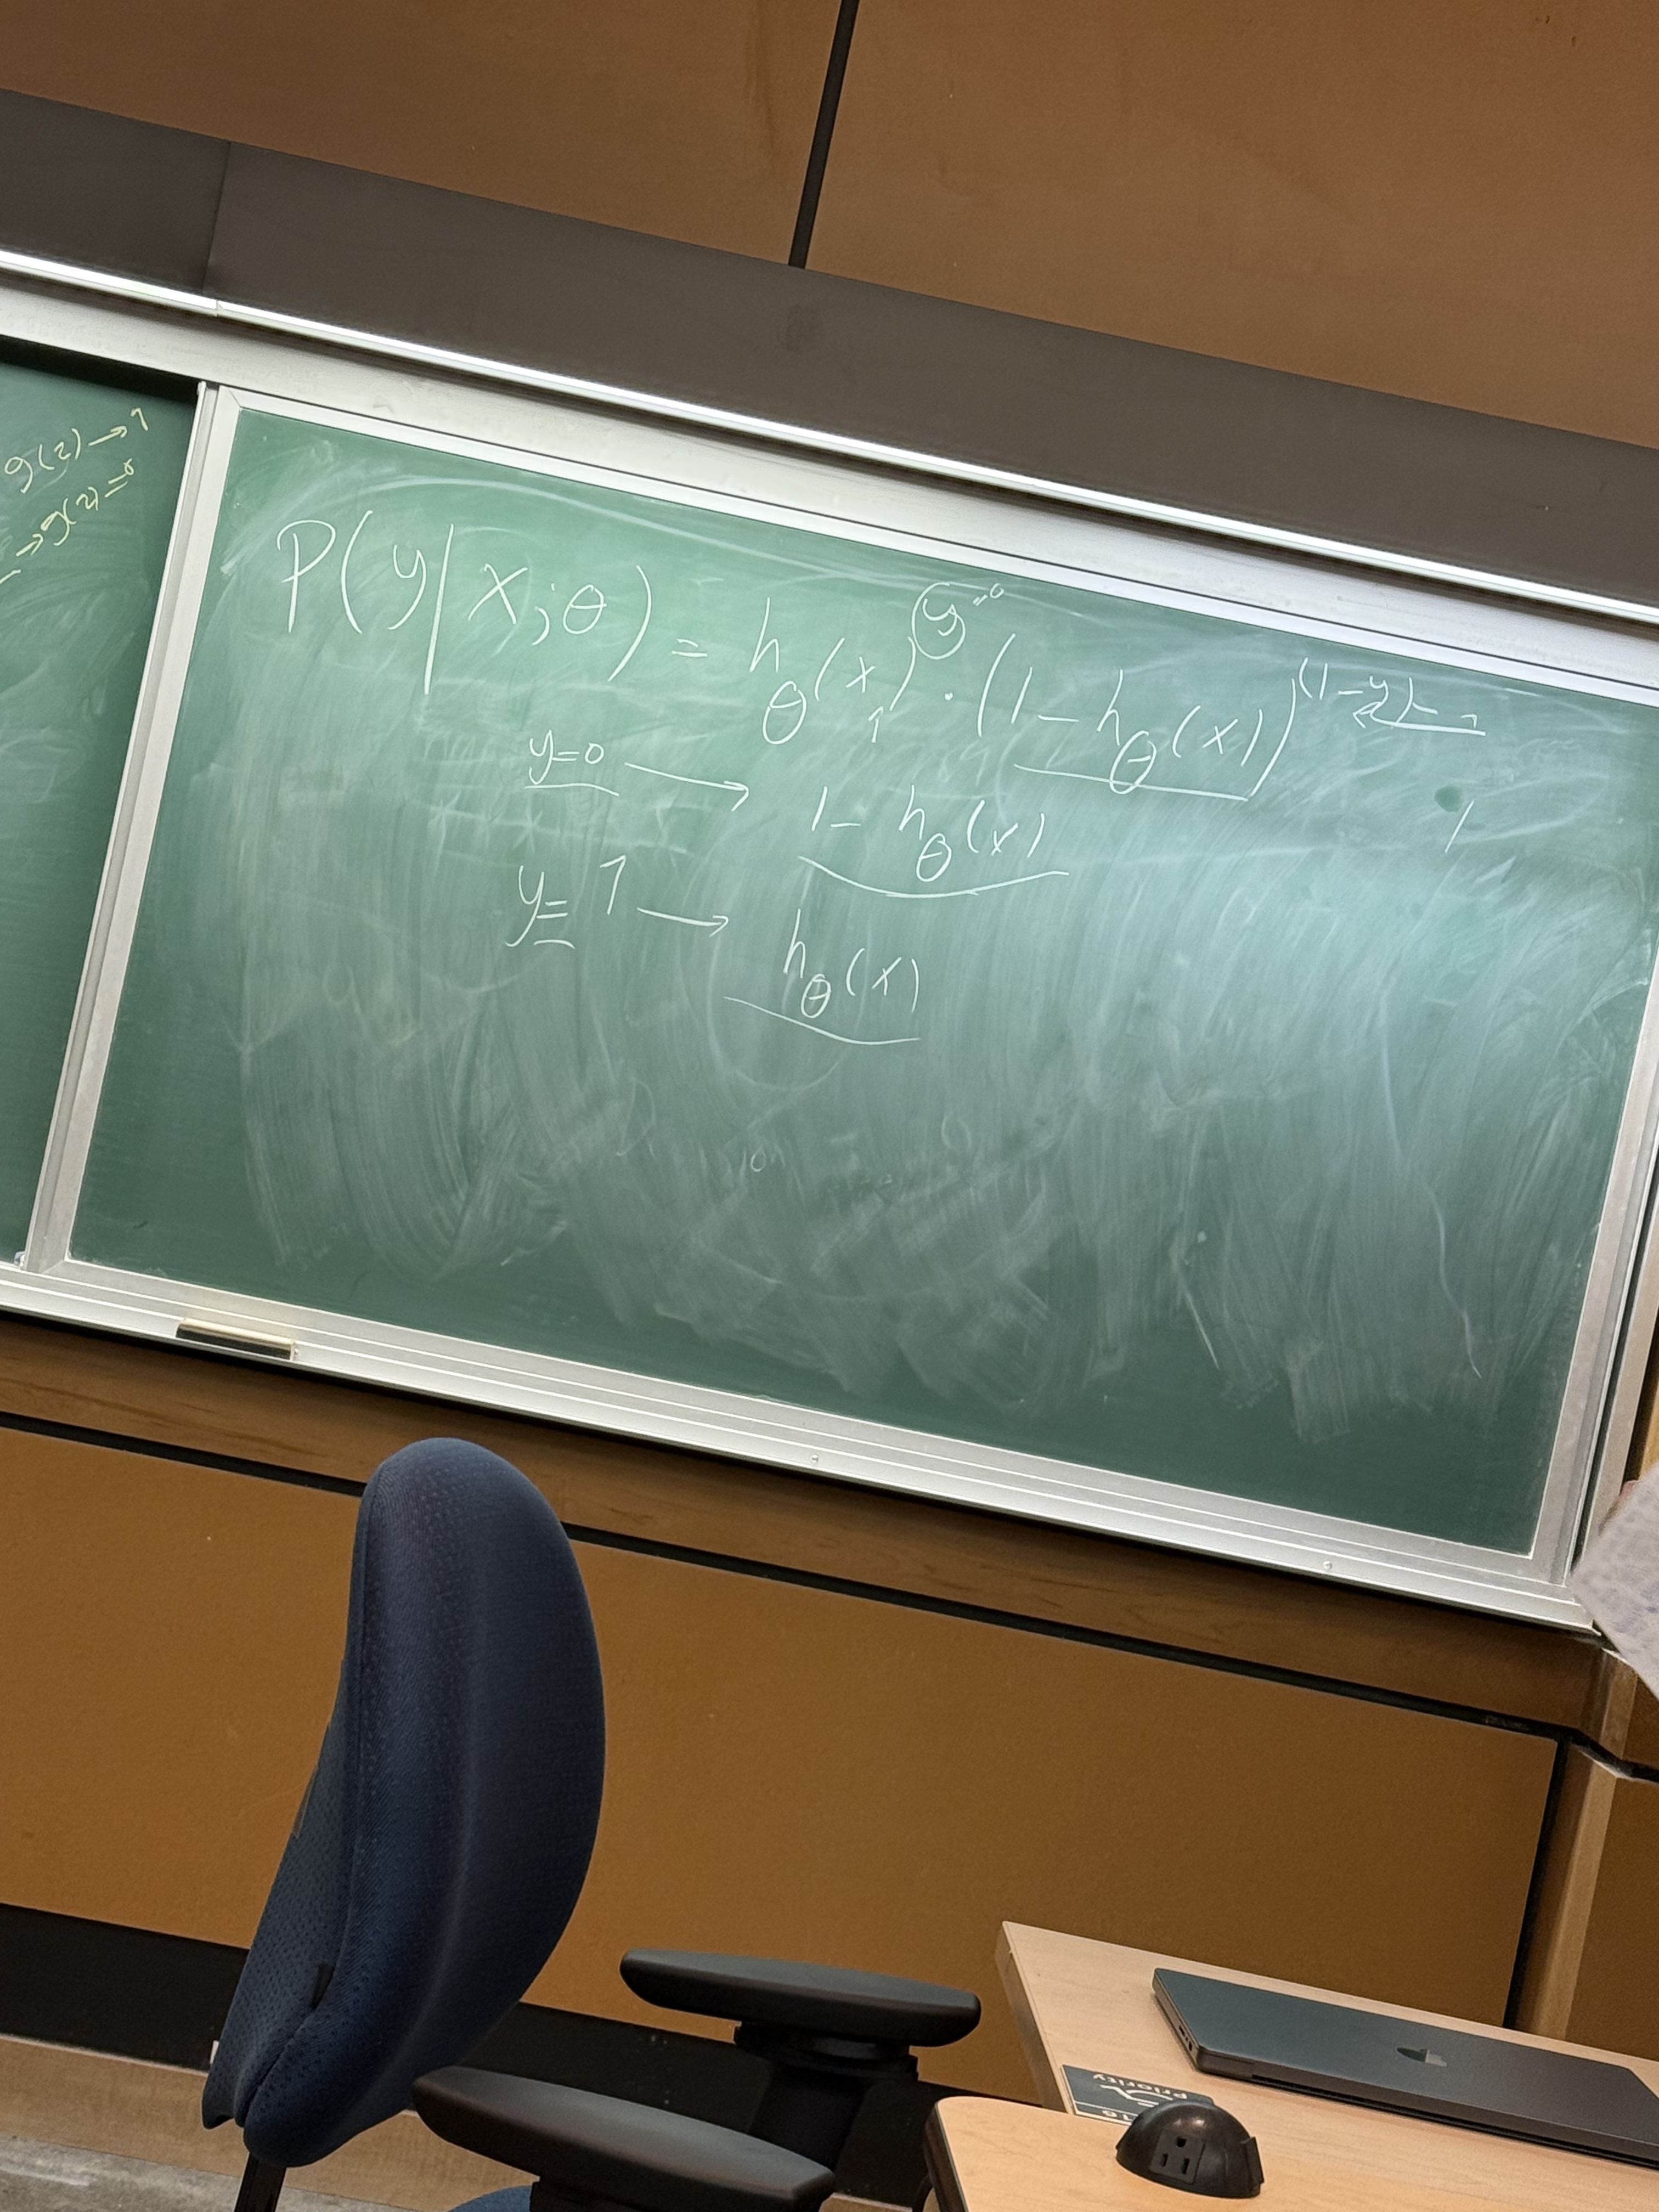 g(z) → 1
→ g(z) = 0
P(y|x;θ) = h_θ(x)^y=0 · (1 - h_θ(x))^(1-y)
y=0 → 1 - h_θ(x)
y= 1 → h_θ(x)
Priority